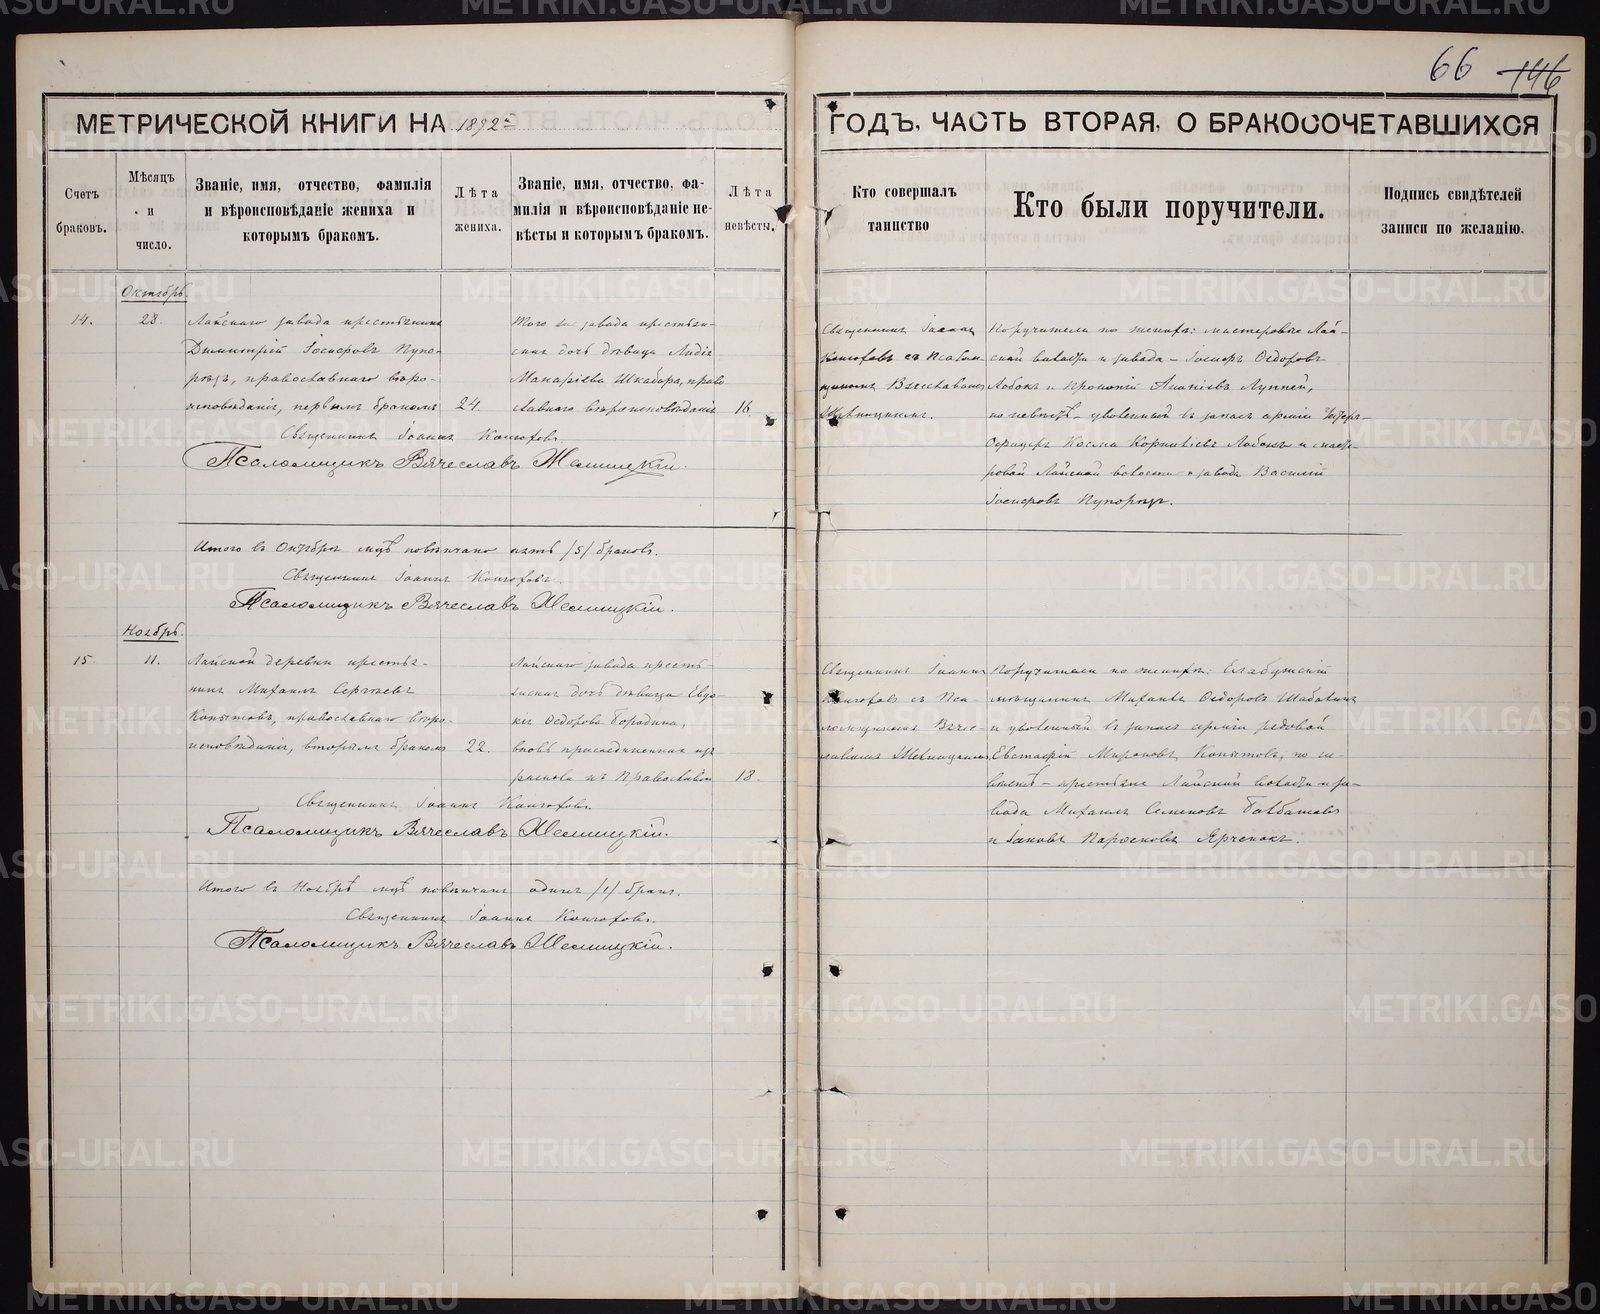 66 146
МЕТРИЧЕСКОЙ КНИГИ НА 1892 г.
ГОДЪ, ЧАСТЬ ВТОРАЯ, О БРАКОСОЧЕТАВШИХСЯ
Счетъ браковъ.
Мѣсяцъ и число.
Званіе, имя, отчество, фамилія
и вѣроисповѣданіе жениха и
которымъ бракомъ.
Лѣта жениха.
Званіе, имя, отчество, фа-
милія и вѣроисповѣданіе не-
вѣсты и которымъ бракомъ.
Лѣта невѣсты.
Кто совершалъ
таинство
Кто были поручители.
Подпись свидѣтелей
записи по желанію.
Октябрь.
14.
28.
Лайскаго завода крестьянинъ
Димитрій Іосифовъ Пупо-
рѣзъ, православнаго вѣро-
исповѣданія, первымъ бракомъ
24.
Того же завода крестьян-
ская дочь дѣвица Лидія
Макаріева Шкабара, право-
славнаго вѣроисповѣданія
16.
Священникъ Іоаннъ
съ Псалом-
щикомъ Вячеславомъ
Поручители по женихѣ: мастеровые Лай-
ской волости и завода – Іосифъ Ѳедоровъ
Лобокъ и Ананіевъ
по невѣстѣ – уволенный въ запасъ арміи Унтеръ-
Офицеръ Косма Корниліевъ Лобокъ и масте-
ровой Лайской волости и завода Василій
Іосифовъ Пупорѣзъ.
Священникъ Іоаннъ
Псаломщикъ Вячеславъ
Итого въ Октябрѣ мцѣ повѣнчано пять /5/ браковъ.
Священникъ Іоаннъ
Псаломщикъ Вячеславъ
Ноябрь.
15
11.
Лайской деревни крестья-
нинъ Михаилъ Сергѣевъ
Копытовъ, православнаго вѣро-
исповѣданія, вторымъ бракомъ
22.
Лайскаго завода кресть-
янская дочь дѣвица Евдо-
кія Ѳедорова Бородина,
вновь присоединенная изъ
раскола къ Православію
18.
Священникъ Іоаннъ
съ Пса-
ломщикомъ Вяче-
славомъ
Поручители по женихѣ: Елабужскій
мѣщанинъ Михаилъ Ѳедоровъ
и уволенный въ запасъ арміи рядовой
Евстафій Мироновъ Копытовъ; по не-
вѣстѣ – крестьяне Лайской волости и за-
вода Михаилъ Семеновъ
и Іаковъ Парѳеновъ
Священникъ Іоаннъ
Псаломщикъ Вячеславъ
Итого въ Ноябрѣ мцѣ повѣнчанъ одинъ /1/ бракъ.
Священникъ Іоаннъ
Псаломщикъ Вячеславъ
METRIKI.GASO-URAL.RU